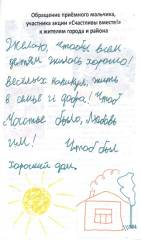 Обращение приёмного мальчика,
участника акции «Счастливы вместе!»
к жителям города и района
Желаю, чтобы всем
детям жилось хорошо!
Весёлых каникул, жить
в семье и добра! Чтоб
было, Любовь
им! Чтоб был
хороший дом.